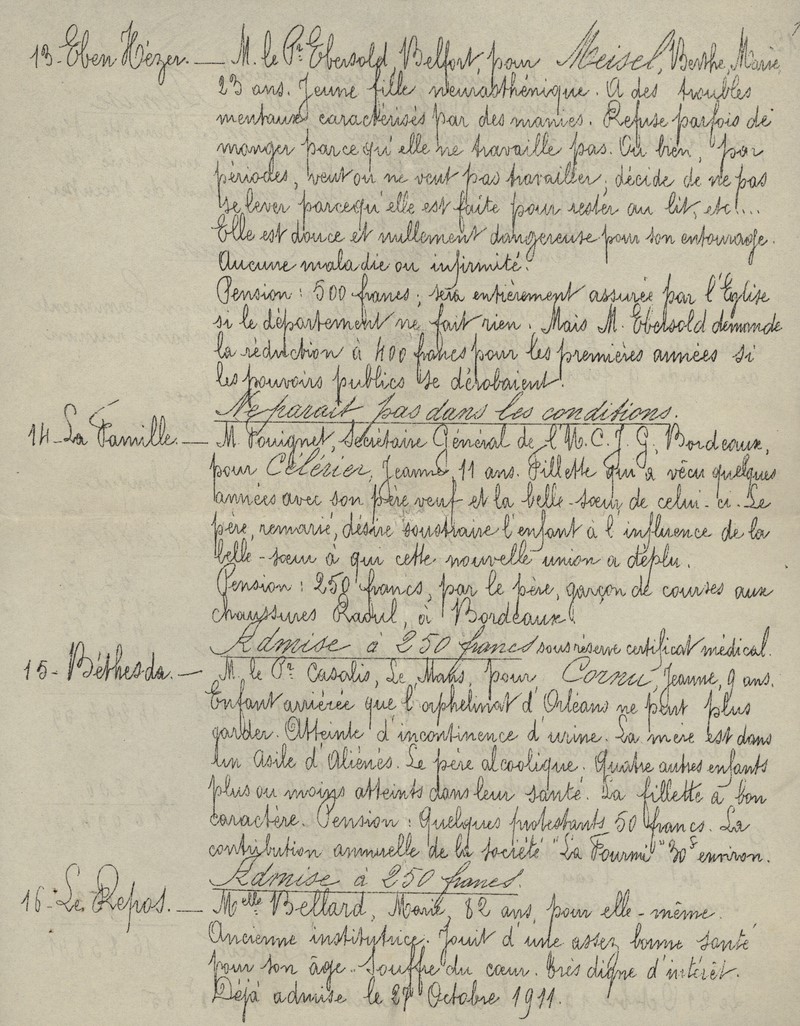 13 - Eben Hézer. — M. le Pr Ebersold, Belfort, pour Meisel, Berthe, Marie,
23 ans. Jeune fille neurasthénique. A des troubles
mentaux caractérisés par des manies. Refuse parfois de
manger parce qu'elle ne travaille pas. Ou bien, par
périodes, veut ou ne veut pas travailler; décide de ne pas
se lever parcequ'elle est faite pour rester au lit, etc...
Elle est douce et nullement dangereuse pour son entourage.
Aucune maladie ou infirmité.
Pension : 500 francs; sera entièrement assurée par l'Eglise
si le département ne fait rien. Mais M. Ebersold demande
la réduction à 400 francs pour les premières années si
les pouvoirs publics se dérobaient.
Ne parait pas dans les conditions.
14 - La Famille. — M. Pouignet, Secrétaire Général de l'U.C.J.G., Bordeaux,
pour Célérier, Jeanne, 11 ans. Fillette qui a vécu quelques
années avec son père veuf et la belle-sœur de celui-ci. Le
père, remarié, désire soustraire l'enfant à l'influence de la
belle-sœur à qui cette nouvelle union a déplu.
Pension : 250 francs, par le père, garçon de courses aux
chaussures Raoul, à Bordeaux.
Admise à 250 francs sous réserve certificat médical.
15 - Béthesda. — M. le Pr Casalis, Le Mans, pour Cornu, Jeanne, 9 ans.
Enfant arriérée que l'orphelinat d'Orléans ne peut plus
garder. Atteinte d'incontinence d'urine. La mère est dans
un Asile d'Aliénés. Le père alcoolique. Quatre autres enfants
plus ou moins atteints dans leur santé. La fillette a bon
caractère. Pension : Quelques protestants 50 francs. La
contribution annuelle de la société "La Fourmi" 30f environ.
Admise à 250 francs.
16 - Le Repos. — Melle Bellard, Marie, 82 ans, pour elle-même.
Ancienne institutrice. Jouit d'une assez bonne santé
pour son âge. Souffre du cœur. Très digne d'intérêt.
Déjà admise le 27 Octobre 1911.